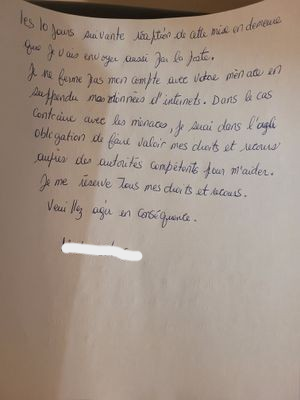 les 10 jours suivante réception de cette mise en demeure
que je vais envoyer aussi par la poste.
Je ne ferme pas mon compte avec votre menace en
suppendu mas données d'internets. Dans le cas
contraire avec les menaces, je serai dans l'
obligation de faire valoir mes droits et recours
auprès des autorités compétents pour m'aider.
Je me réserve tous mes droits et recours.
Veuillez agir en conséquence.